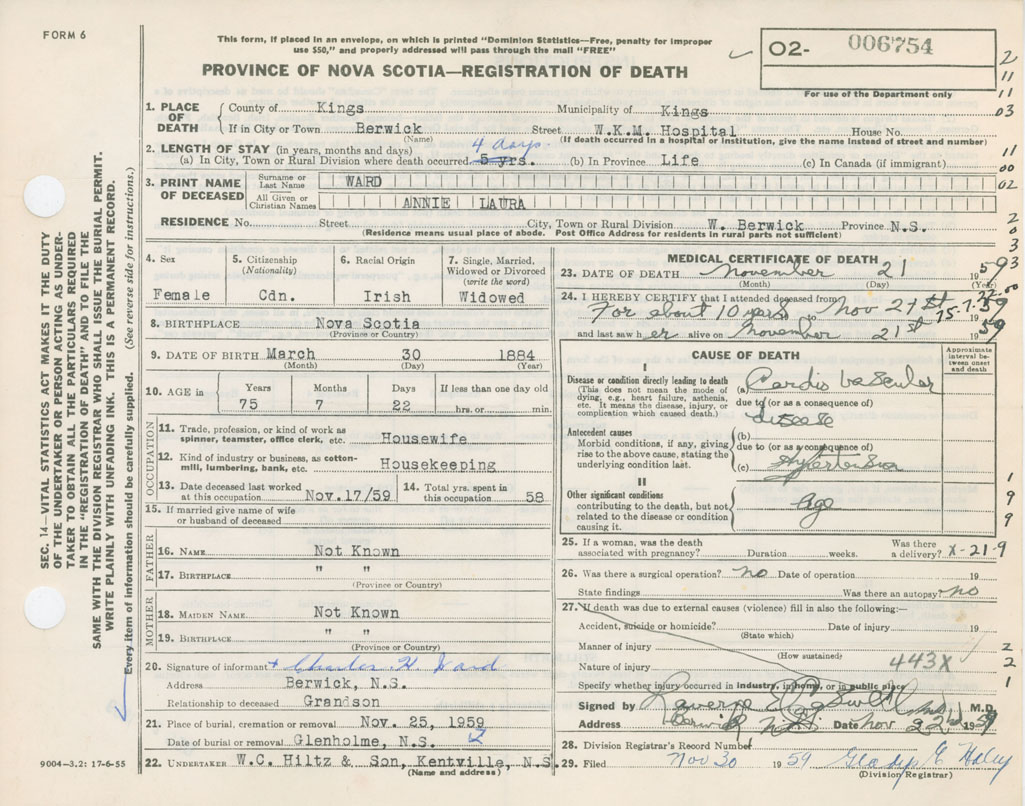 FORM 6
This form, if placed in an envelope, on which is printed "Dominion Statistics—Free, penalty for improper
use $50," and properly addressed will pass through the mail "FREE"
PROVINCE OF NOVA SCOTIA—REGISTRATION OF DEATH
O2- 006754
For use of the Department only
2
11
11
03
11
00
02
2
0
3
93
SEC. 14—VITAL STATISTICS ACT MAKES IT THE DUTY
OF THE UNDERTAKER OR PERSON ACTING AS UNDER-
TAKER TO OBTAIN ALL THE PARTICULARS REQUIRED
IN THE "REGISTRATION OF DEATH" AND TO FILE THE
SAME WITH THE DIVISION REGISTRAR WHO SHALL ISSUE THE BURIAL PERMIT.
WRITE PLAINLY WITH UNFADING INK. THIS IS A PERMANENT RECORD.
Every item of information should be carefully supplied. (See reverse side for instructions.)
1. PLACE OF DEATH
County of Kings Municipality of Kings
If in City or Town Berwick Street W.K.M. Hospital House No.
(Name) (If death occurred in a hospital or institution, give the name instead of street and number)
2. LENGTH OF STAY (in years, months and days)
4 days
(a) In City, Town or Rural Division where death occurred 5 yrs. (b) In Province Life (c) In Canada (if immigrant)
3. PRINT NAME OF DECEASED
Surname or Last Name WARD
All Given or Christian Names ANNIE LAURA
RESIDENCE No. Street City, Town or Rural Division W. Berwick Province N.S.
(Residence means usual place of abode. Post Office Address for residents in rural parts not sufficient)
4. Sex
Female
5. Citizenship
(Nationality)
Cdn.
6. Racial Origin
Irish
7. Single, Married,
Widowed or Divorced
(write the word)
Widowed
8. BIRTHPLACE Nova Scotia
(Province or Country)
9. DATE OF BIRTH March 30 1884
(Month) (Day) (Year)
10. AGE in
Years Months Days If less than one day old
75 7 22 hrs. or min.
OCCUPATION
11. Trade, profession, or kind of work as
spinner, teamster, office clerk, etc. Housewife
12. Kind of industry or business, as cotton-
mill, lumbering, bank, etc. Housekeeping
13. Date deceased last worked
at this occupation Nov.17/59
14. Total yrs. spent in
this occupation 58
15. If married give name of wife
or husband of deceased
FATHER
16. NAME Not Known
17. BIRTHPLACE " "
(Province or Country)
MOTHER
18. MAIDEN NAME Not Known
19. BIRTHPLACE " "
(Province or Country)
20. Signature of informant Charles H. Ward
Address Berwick, N.S.
Relationship to deceased Grandson
21. Place of burial, cremation or removal Nov. 25, 1959
Date of burial or removal Glenholme, N.S.
22. UNDERTAKER W.C. Hiltz & Son, Kentville, N.S.
(Name and address)
9004—3.2: 17-6-55
MEDICAL CERTIFICATE OF DEATH
23. DATE OF DEATH November 21 1959
(Month) (Day) (Year)
24. I HEREBY CERTIFY that I attended deceased from
For about 10 years to Nov 21st 1959
and last saw her alive on November 21st 1959
CAUSE OF DEATH
Approximate
interval be-
tween onset
and death
I
Disease or condition directly leading to death
(This does not mean the mode of
dying, e.g., heart failure, asthenia,
etc. It means the disease, injury, or
complication which caused death.)
(a) Cardio vascular
due to (or as a consequence of)
disease
Antecedent causes
Morbid conditions, if any, giving
rise to the above cause, stating the
underlying condition last.
(b)
due to (or as a consequence of)
(c) Hypertension
II
Other significant conditions
contributing to the death, but not
related to the disease or condition
causing it.
Age
1
9
9
25. If a woman, was the death
associated with pregnancy? Duration weeks. Was there
a delivery? X-21-9
26. Was there a surgical operation? no Date of operation 19
State findings Was there an autopsy? no
27. If death was due to external causes (violence) fill in also the following:—
Accident, suicide or homicide? Date of injury 19
(State which)
Manner of injury 2
(How sustained)
Nature of injury 443X 2
Specify whether injury occurred in industry, in home, or in public place 1
Signed by M.D.
Address Berwick N.S. Date Nov 22 1959
28. Division Registrar's Record Number
29. Filed Nov 30 1959 Gladys E Haley
(Division Registrar)